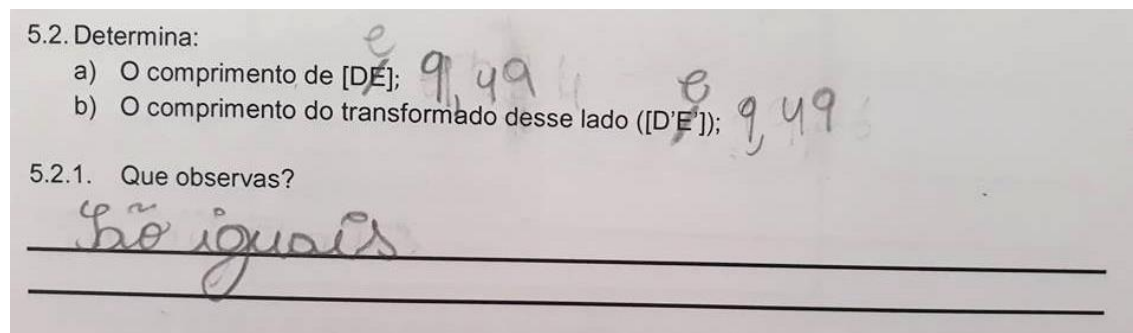 5.2. Determina:
a) O comprimento de [DE]; e 9,49
b) O comprimento do transformado desse lado ([D'E']); e 9,49
5.2.1. Que observas?
São iguais